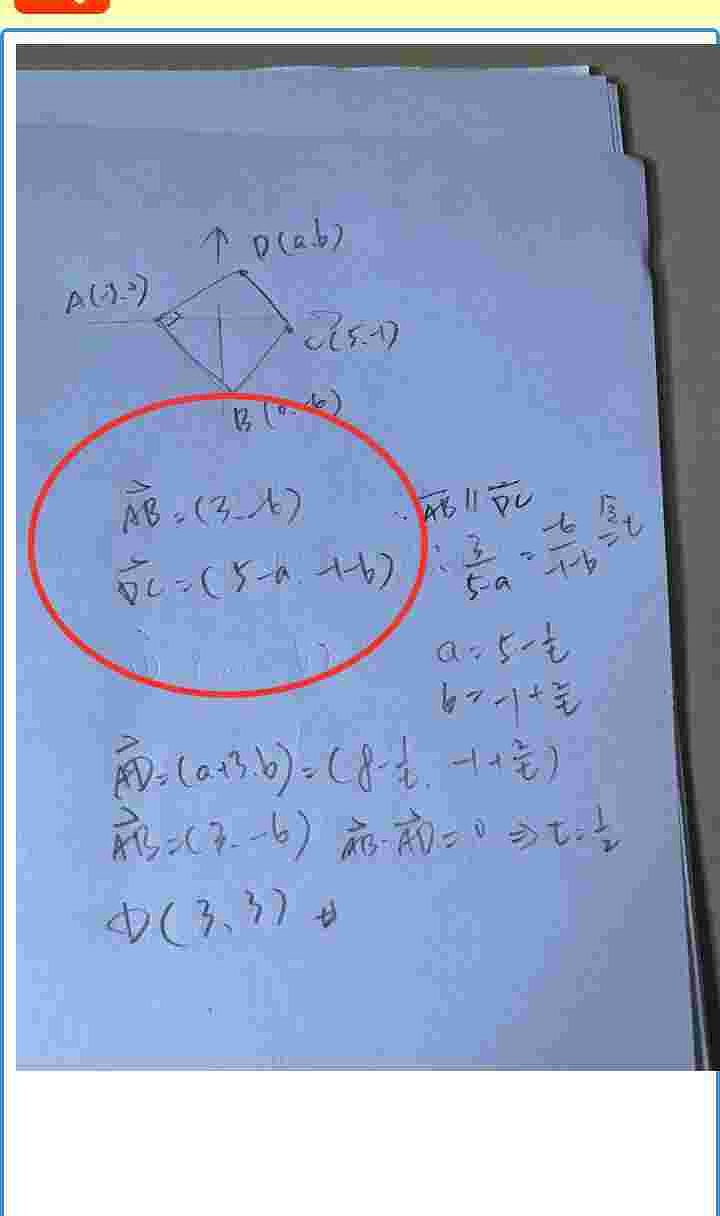 D(a.b)
A(-3.0)
C(5.-1)
B(0.-6)
AB = (3.-6)
DC = (5-a. -1-b)
∵ AB // DC
∴ 3/(5-a) = -6/(-1-b) = t
a = 5 - 1/t
b = -1 + 2/t
AD = (a+3.b) = (8 - 1/t. -1 + 2/t)
AB = (3. -6) AB · AD = 0 ⇒ t = 1/2
D(3、3) #